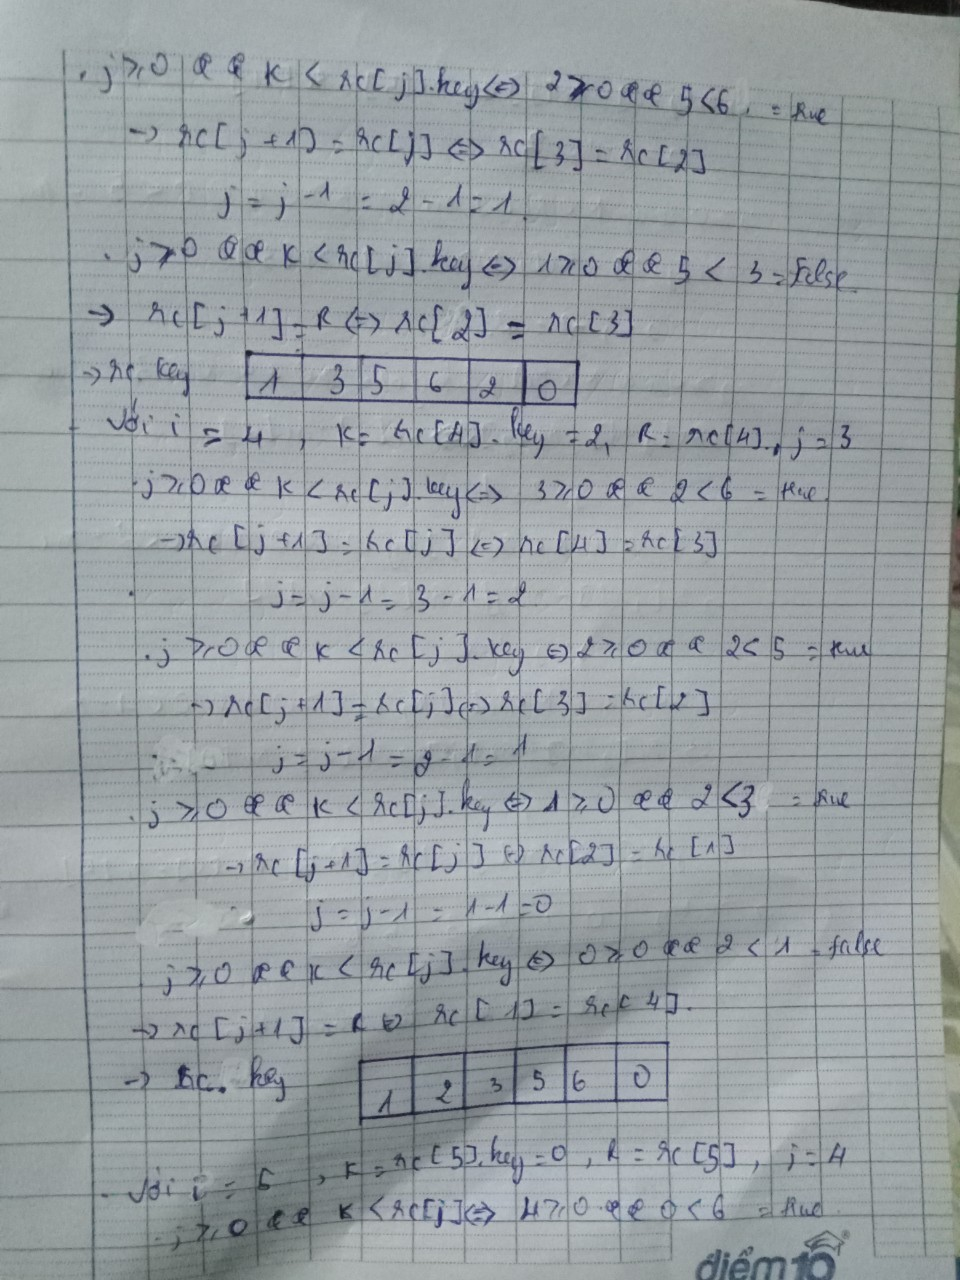 . j ≥ 0 && K < rc[j].key ⇔ 2 ≥ 0 && 5 < 6 = true
→ rc[j+1] = rc[j] ⇔ rc[3] = rc[2]
j = j - 1 = 2 - 1 = 1
. j ≥ 0 && K < rc[j].key ⇔ 1 ≥ 0 && 5 < 3 = False
→ rc[j+1] = R ⇔ rc[2] = rc[3]
→ rc.key 1 3 5 6 2 0
- Với i = 4, K = rc[4].key = 2, R = rc[4], j = 3
. j ≥ 0 && K < rc[j].key ⇔ 3 ≥ 0 && 2 < 6 = true
→ rc[j+1] = rc[j] ⇔ rc[4] = rc[3]
j = j - 1 = 3 - 1 = 2
. j ≥ 0 && K < rc[j].key ⇔ 2 ≥ 0 && 2 < 5 = true
→ rc[j+1] = rc[j] ⇔ rc[3] = rc[2]
j = j - 1 = 2 - 1 = 1
. j ≥ 0 && K < rc[j].key ⇔ 1 ≥ 0 && 2 < 3 = true
→ rc[j+1] = rc[j] ⇔ rc[2] = rc[1]
j = j - 1 = 1 - 1 = 0
j ≥ 0 && K < rc[j].key ⇔ 0 ≥ 0 && 2 < 1 = false
→ rc[j+1] = R ⇔ rc[1] = rc[4].
→ rc.key 1 2 3 5 6 0
- Với i = 5, K = rc[5].key = 0, R = rc[5], j = 4
. j ≥ 0 && K < rc[j] ⇔ 4 ≥ 0 && 0 < 6 = true
điểm 10